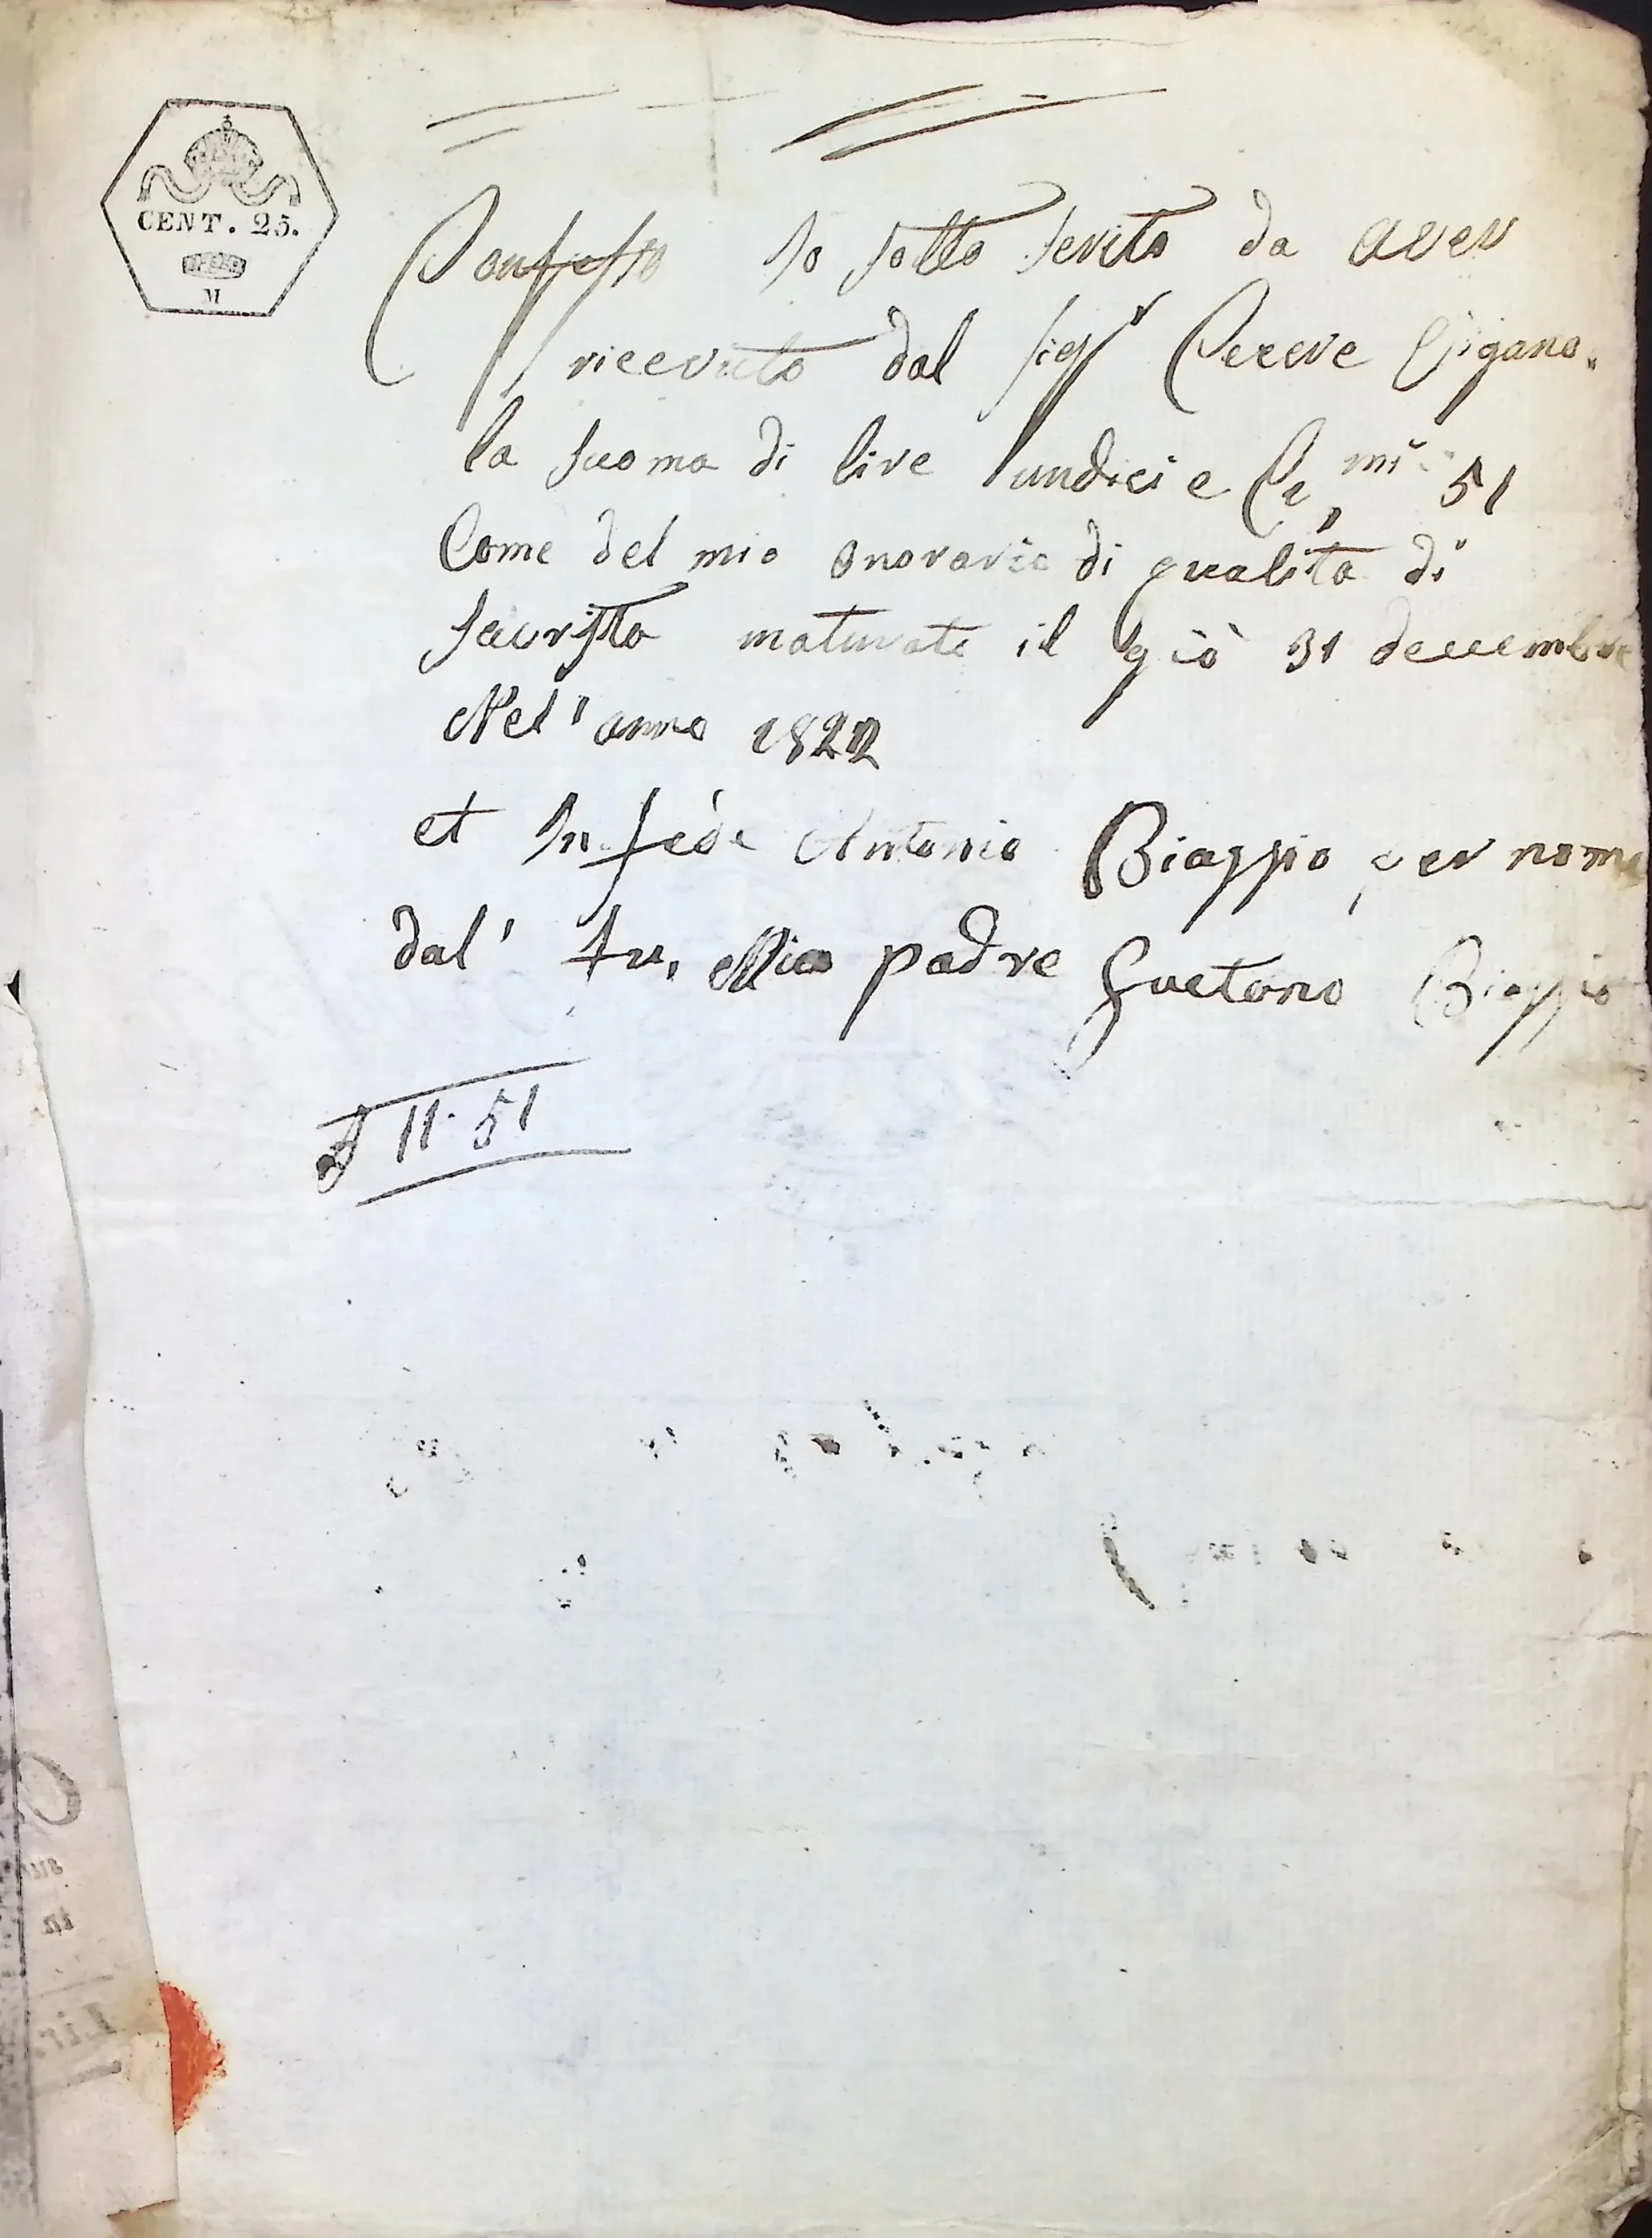 CENT. 25.
M
Confesso Io sotto scrito da aver
ricevuto dal sigr Cereve Gigano.
la suoma di lire undici e Ce,mi 51
Come del mio onorario di qualita di
sacrista maturato il già 31 decembre
Nel' anno 1822
et In fede Antonio Biaggio per nome
dal' fu, Mio padre Gaetano Biaggio
11. 51